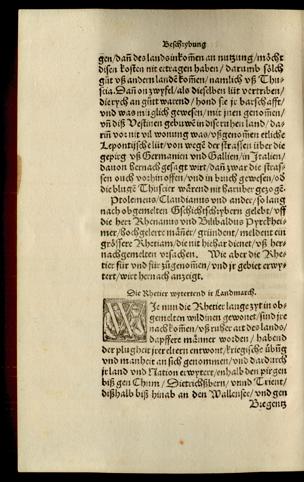 Beschrybung
gen/dañ des landsinkom̃en an nutzung/möcht
disen kosten nit ertragen haben/darumb sölch
gůt vß andern landẽ kom̃en/namlich vß Thu-
scia. Dañ on zwyfel/als dieselben lüt vertriben/
die rych an gůt warend/hond sie jr barschafft/
vnd was můglich gewesen/mit jnen genom̃en/
vñ diß Vestinen gebuwẽ in disem ruhen land/da-
rin vor nit vil wonung was/vßgenom̃en etliche
Lepontische lüt/von wegẽ der strassen über die
gepirg vß Germanien vnd Gallien/in Italien/
dauon hernach gesagt wirt/dañ zwar die stras-
sen ouch vorhin offen/vnd in buch gewesen/ob
die blugẽ Thuscier wärend nit harüber gezogẽ.
Ptolemeus/Claudianus vnd ander/so lang
nach obgemelten Gschichtschrybern gelebt/vff
die herr Rhenanus vnd Bilibaldus Pyrckhei-
mer/hochgelerte mäñer/gründent/meldent ein
grössere Rhetiam/die nit hiehar dienet/vß her-
nachgemelten vrsachen. Wie aber die Rhe-
tier für vnd für zůgenom̃en/vnd jr gebiet erwy-
tert/wirt hernach anzeigt.
Die Rhetier wytertend ir Landmarch.
WIe nun die Rhetier lange zyt in ob-
gemelten wildinen gewonet/sind jre
nachkom̃en/vß ruher art des lands/
dapffere mäñer worden/habend
der plugheit jrer eltern entwont/kriegische übũg
vnd manheit an sich genommen/vnd dardurch
jr land vnd Nation erwytert/enhalb den pirgen
biß gen Chum/Dietrichßbern/vnnd Trient/
dißhalb biß hinab an den Wallensee/vnd gen
Bregentz